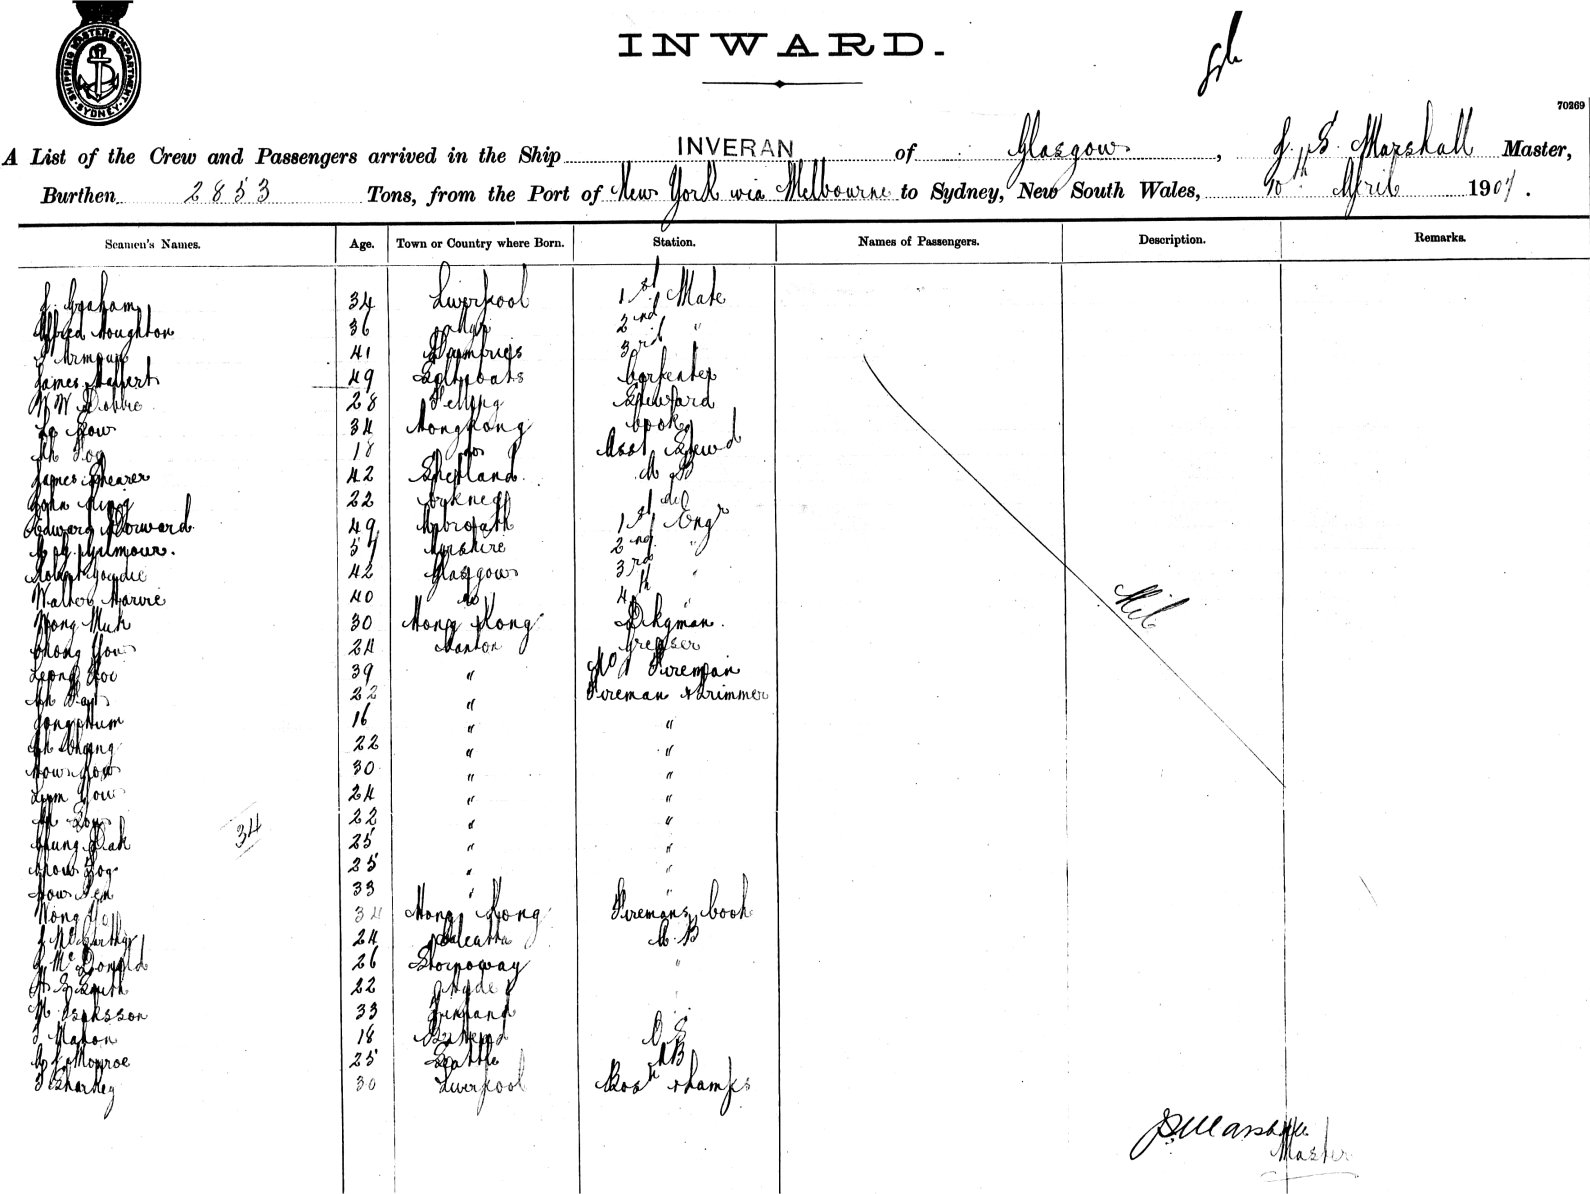 SHIPPING MASTERS DEPARTMENT SYDNEY
INWARD.
70269
A List of the Crew and Passengers arrived in the Ship INVERAN of Glasgow, J. S. Marshall Master,
Burthen 2853 Tons, from the Port of New York via Melbourne to Sydney, New South Wales, 10th April 1907.
Seamen's Names. Age. Town or Country where Born. Station. Names of Passengers. Description. Remarks.
J. Graham 34 Liverpool 1st Mate
Alfred Houghton 36 2nd "
J Armour 41 Dumfries 3rd
James 49 Saltcoats Carpenter
W W Dobbie 28 Felling Steward
34 Hongkong Cook
Ah 18 do Asst Stewd
James Shearer 42 Shetland A B
John King 22 Orkney do
Edward Dorward 49 Arbroath 1st Engr
Gilmour. 57 Ayrshire 2nd "
Robert Goudie 42 Glasgow 3rd "
Walter Harvie 40 do 4th "
Wong Muk 30 Hong Kong Dkyman.
Chong You 24 Canton Greaser
Leong 39 " No 1 Fireman
Ah 22 " Fireman & Trimmer
16 " "
Ah Chong 22 " "
30 " "
Lum You 24 " "
Ah 22 " "
34
Chung 25 " "
Chow 25 " "
33 " "
Wong 34 Hong Kong Firemans Cook
J McCarthy 24 Calcutta A.B
J McDonald 26 Stornoway "
H S Smith 22 Hyde "
M Isaksson 33 Finland "
J Mahon 18 O S
Monroe 25 Seattle AB
Sharkey 30 Liverpool Bosn & Lamps
Nil
J S Marshall
Master